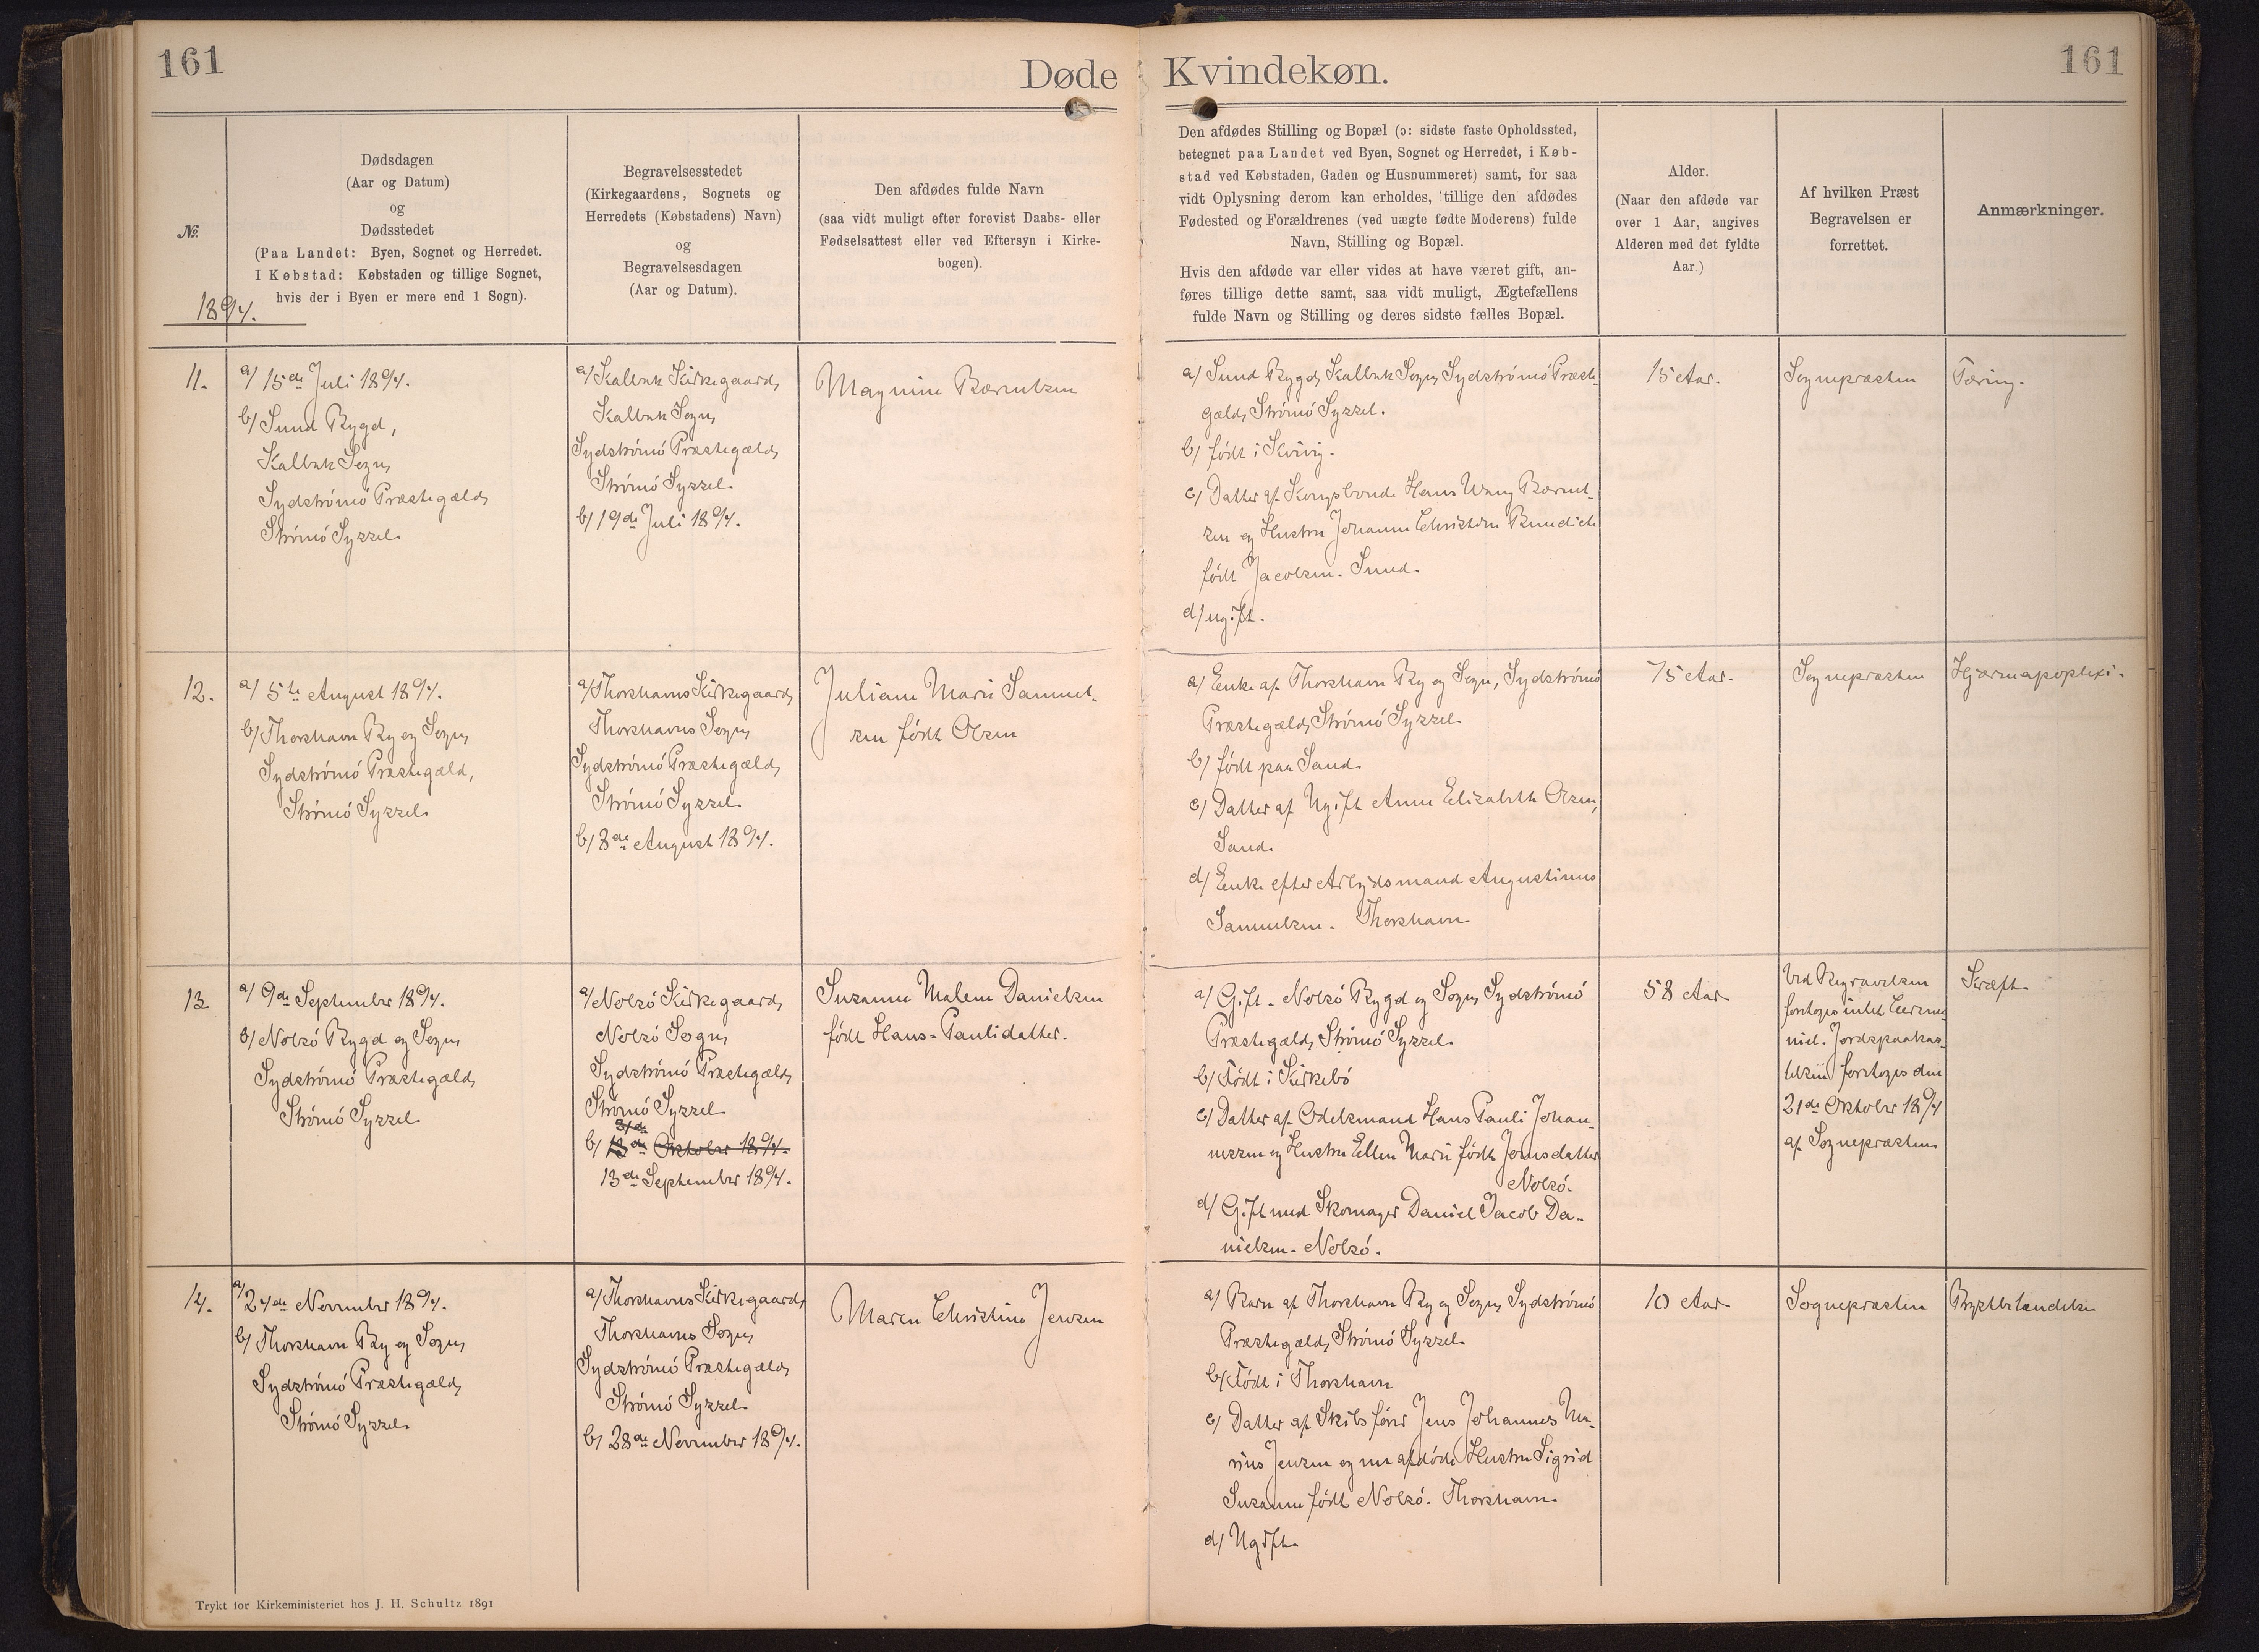 161
Døde
Kvindekøn.
161
№
1894.
Dødsdagen
(Aar og Datum)
og
Dødsstedet
(Paa Landet: Byen, Sognet og Herredet.
I Købstad: Købstaden og tillige Sognet,
hvis der i Byen er mere end 1 Sogn).
Begravelsesstedet
(Kirkegaardens, Sognets og
Herredets (Købstadens) Navn)
og
Begravelsesdagen
(Aar og Datum).
Den afdødes fulde Navn
(saa vidt muligt efter forevist Daabs- eller
Fødselsattest eller ved Eftersyn i Kirke-
bogen).
Den afdødes Stilling og Bopæl (ɔ: sidste faste Opholdssted,
betegnet paa Landet ved Byen, Sognet og Herredet, i Køb-
stad ved Købstaden, Gaden og Husnummeret) samt, for saa
vidt Oplysning derom kan erholdes, tillige den afdødes
Fødested og Forældrenes (ved uægte fødte Moderens) fulde
Navn, Stilling og Bopæl.
Hvis den afdøde var eller vides at have været gift, an-
føres tillige dette samt, saa vidt muligt, Ægtefællens
fulde Navn og Stilling og deres sidste fælles Bopæl.
Alder.
(Naar den afdøde var
over 1 Aar, angives
Alderen med det fyldte
Aar.)
Af hvilken Præst
Begravelsen er
forrettet.
Anmærkninger.
11.
a/ 15de Juli 1894.
b/ Sund Bygd,
Kalbak Sogn,
Sydströmö Præstegæld,
Strömö Syssel.
a/ Kalbak Kirkegaard,
Kalbak Sogn,
Sydströmö Præstegæld,
Strömö Syssel.
b/ 19de Juli 1894.
Magnine Bærentsen
a/ Sund Bygd, Kalbak Sogn, Sydströmö Præste-
gæld, Strömö Syssel.
b/ født i Kvivig.
c/ Datter af Kongsbonde Hans Wang Bærent-
sen og Hustru Johanne Christine Benedicte
født Jacobsen. Sund.
d/ ugift.
15 Aar.
Sognepræsten
Tæring.
12.
a/ 5te August 1894.
b/ Thorshavn By og Sogn,
Sydströmö Præstegæld,
Strömö Syssel.
a/ Thorshavns Kirkegaard,
Thorshavns Sogn,
Sydströmö Præstegæld,
Strömö Syssel.
b/ 8de August 1894.
Juliane Marie Samuel-
sen født Olsen
a/ Enke af Thorshavn By og Sogn, Sydströmö
Præstegæld, Strömö Syssel.
b/ født paa Sand.
c/ Datter af Ugift Anne Elizabeth Olsen,
Sand.
d/ Enke efter Arbejdsmand Augustinus
Samuelsen. Thorshavn
75 Aar.
Sognepræsten
Hjærneapoplexi.
13.
a/ 9de September 1894.
b/ Nolsö Bygd og Sogn,
Sydströmö Præstegæld,
Strömö Syssel.
a/ Nolsö Kirkegaard,
Nolsö Sogn,
Sydströmö Præstegæld,
Strömö Syssel
21de
b/ 13de Oktober 1894.
13de September 1894.
Susanne Malene Danielsen
født Hans-Paulidatter.
a/ Gift. Nolsö Bygd og Sogn, Sydströmö
Præstegæld, Strömö Syssel.
b/ Født i Kirkebö
c/ Datter af Odelsmand Hans Pauli Johan-
nessen og Hustru Ellen Marie født Joensdatter
Nolsö.
d/ Gift med Skomager Daniel Jacob Da-
nielsen. Nolsö.
58 Aar
Ved Begravelsen
foretoges intet Ceremo-
niel. Jordspaakas-
telsen foretoges den
21de Oktober 1894
af Sognepræsten
Kræft.
14.
a/ 24de November 1894.
b/ Thorshavn By og Sogn,
Sydströmö Præstegæld,
Strömö Syssel.
a/ Thorshavns Kirkegaard,
Thorshavns Sogn,
Sydströmö Præstegæld,
Strömö Syssel.
b/ 28de November 1894.
Maren Christine Jensen
a/ Barn af Thorshavn By og Sogn, Sydströmö
Præstegæld, Strömö Syssel.
b/ Født i Thorshavn
c/ Datter af Skibsfører Jens Johannes Ma-
rius Jensen og nu afdøde Hustru Sigrid
Susanne født Nolsö. Thorshavn.
d/ Ugift.
10 Aar
Sognepræsten
Brystbetændelse
Trykt for Kirkeministeriet hos J. H. Schultz 1891